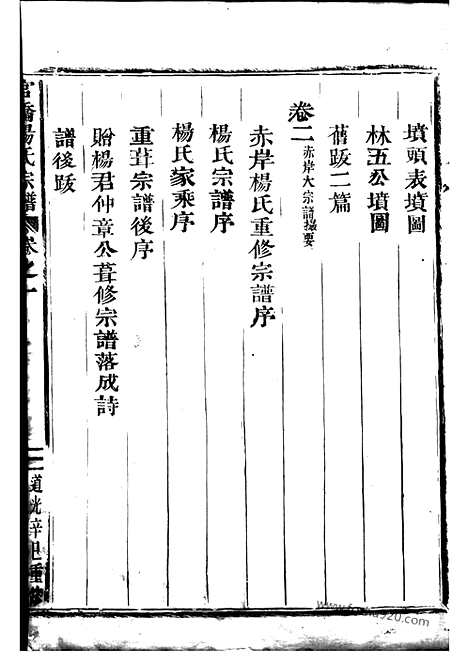 墳頭表墳圖
林五公墳圖
舊跋二篇
卷二 赤岸大宗譜撮要
赤岸楊氏重修宗譜序
楊氏宗譜序
楊氏家乘序
重葺宗譜後序
贈楊君仲章公葺修宗譜落成詩
譜後跋
官橋楊氏宗譜 卷之一 二 道光辛巳重修